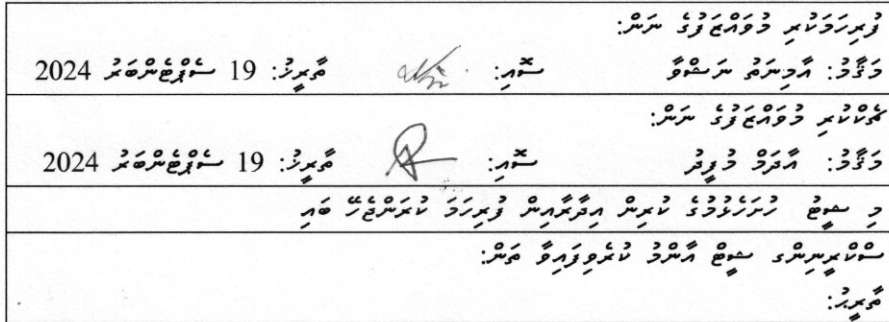 ފުރިހަމަކުރި މުވައްޒަފުގެ ނަން:
މަޤާމު: އާމިނަތު ނަޝްވާ ސޮއި: ތާރީޚު: 19 ސެޕްޓެންބަރު 2024
ޗެކްކުރި މުވައްޒަފުގެ ނަން:
މަޤާމު: އާދަމް މުފީދު ސޮއި: ތާރީޚު: 19 ސެޕްޓެންބަރު 2024
މި ޝީޓު ހުށަހެޅުމުގެ ކުރިން އިދާރާއިން ފުރިހަމަ ކުރަންޖެހޭ ބައި
ސްކްރީނިންގ ޝީޓް އާންމު ކުރެވިފައިވާ ތަން:
ތާރީޙު: